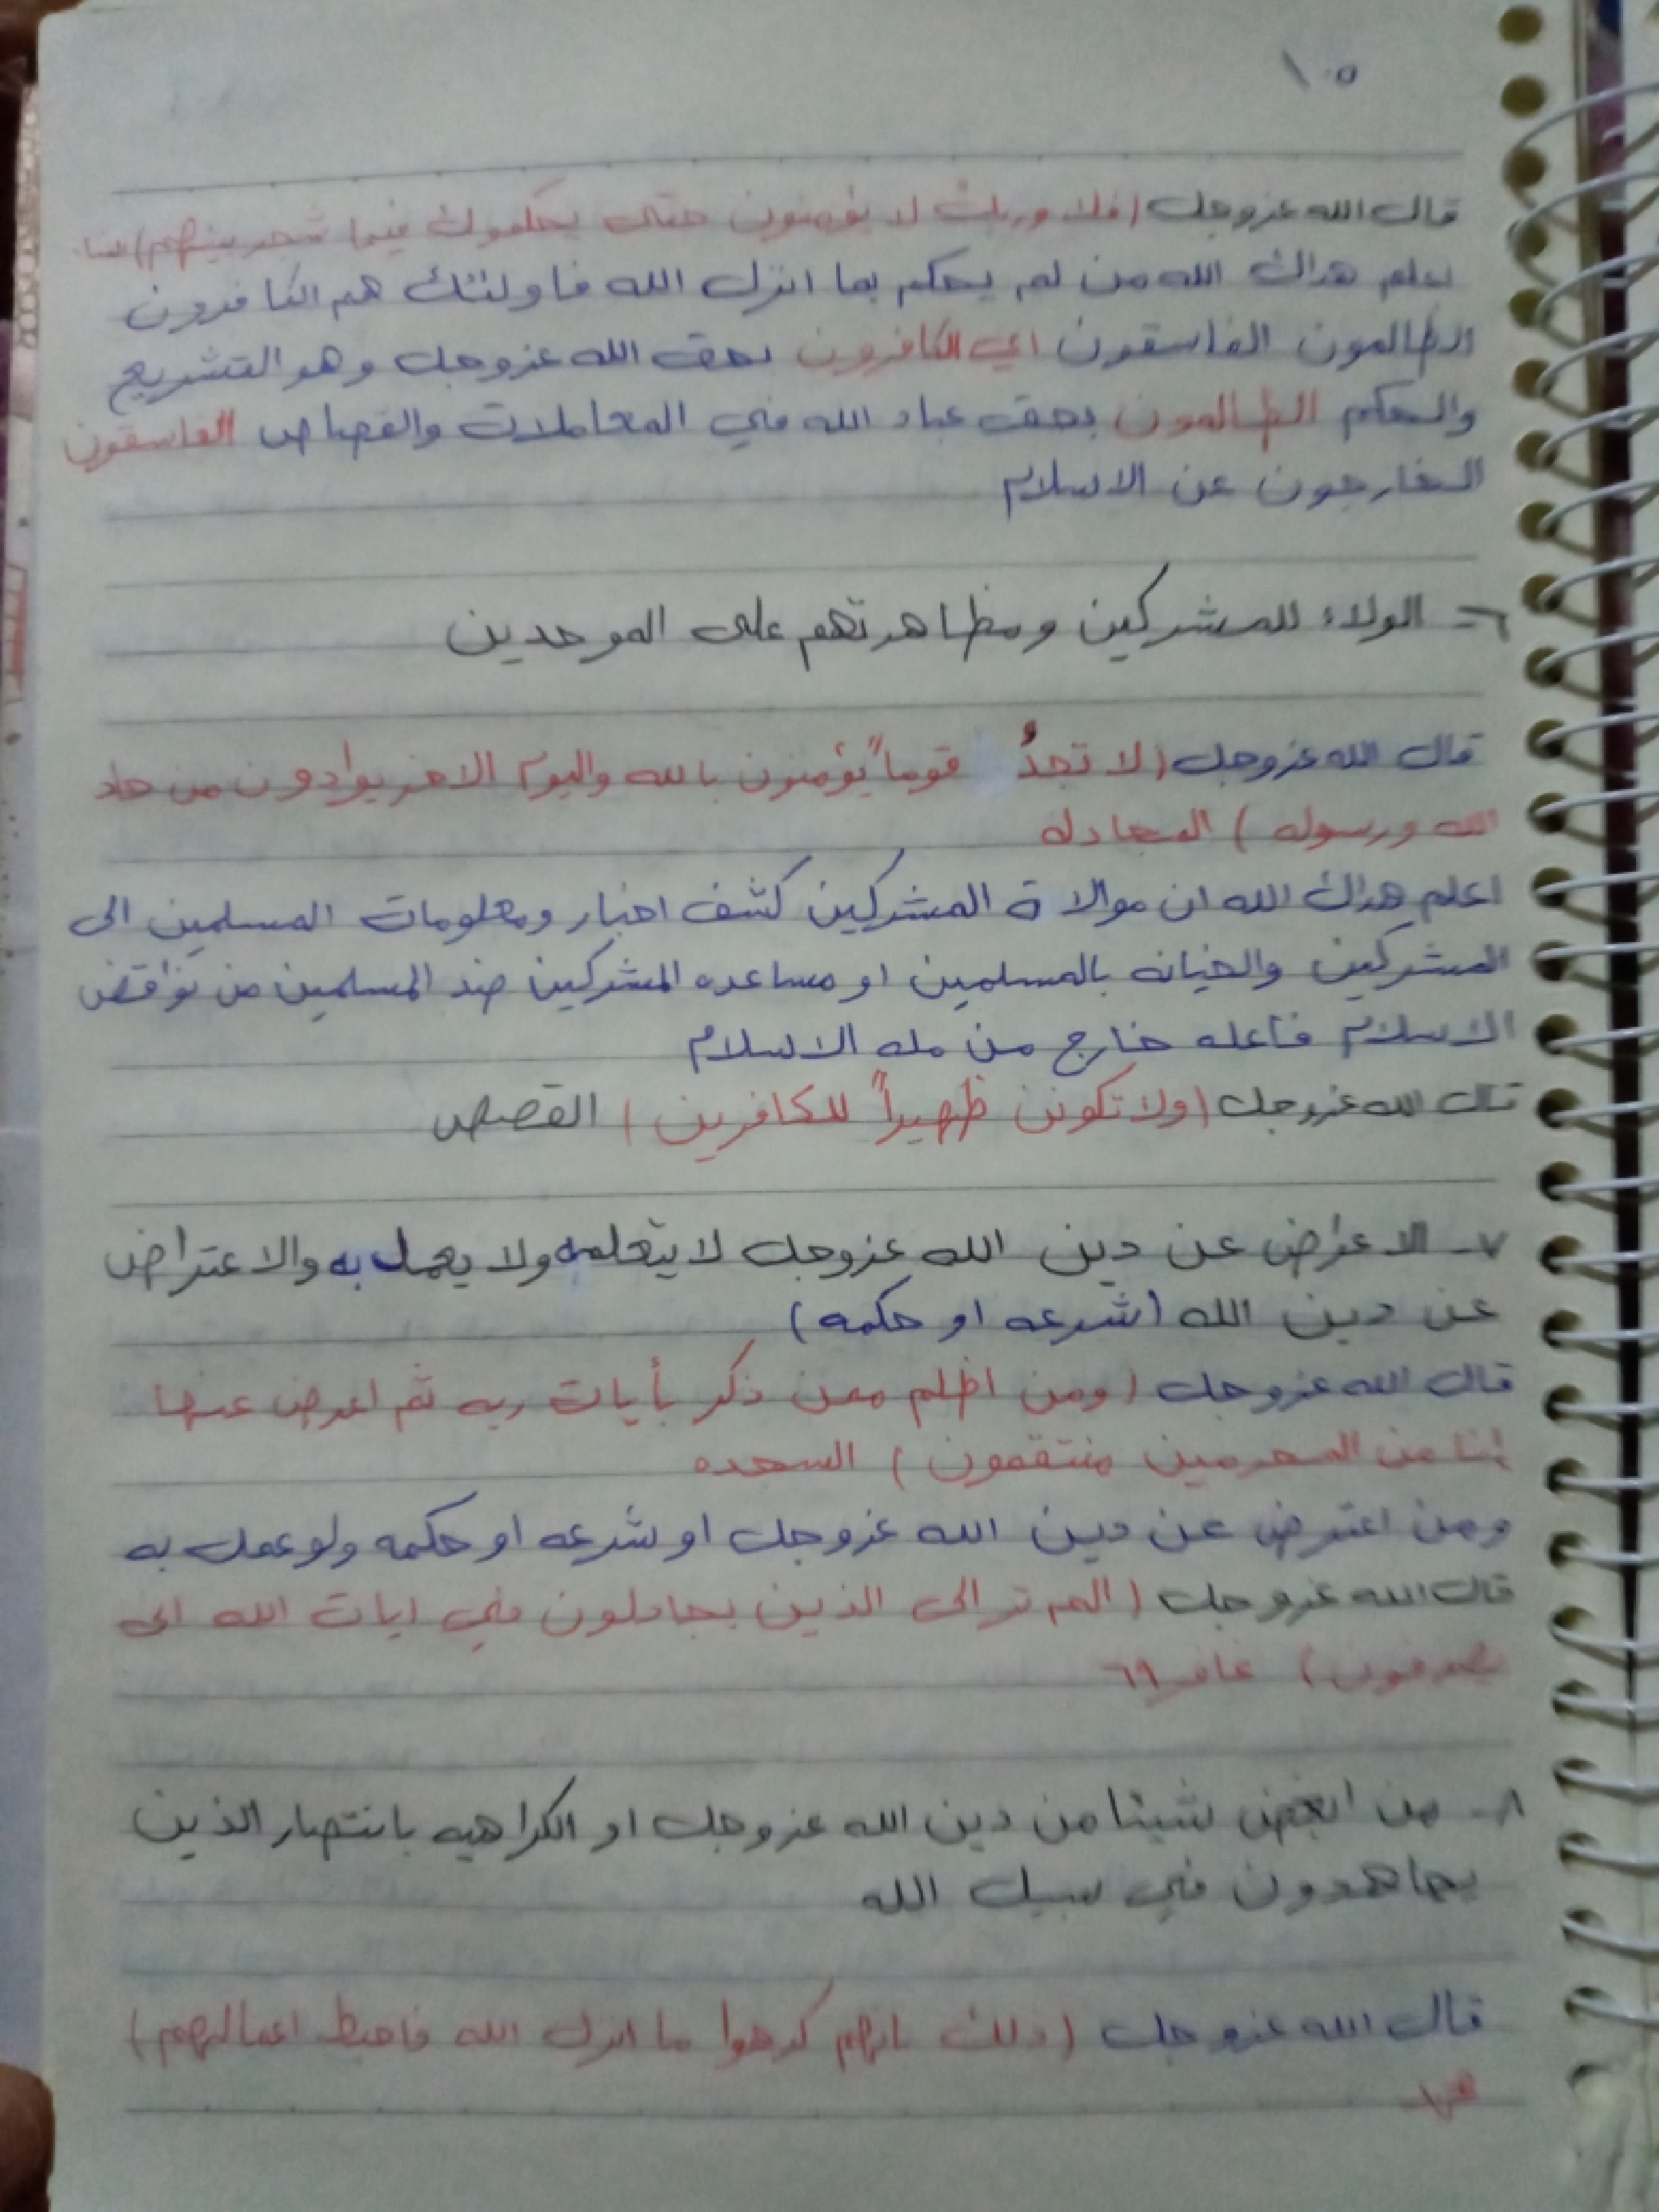 ١٠٥
قال الله عزوجل (فلا وربك لا يؤمنون حتى يحكموك فيما شجر بينهم) النسا
اعلم هداك الله من لم يحكم بما انزل الله فاولئك هم الكافرون
الظالمون الفاسقون اي الكافرون بحق الله عزوجل وهو التشريع
والحكم الظالمون بحق عباد الله في المعاملات والقصاص الفاسقون
الخارجون عن الاسلام
٦- الولاء للمشركين ومظاهرتهم على الموحدين
قال الله عزوجل (لا تجدُ قوماً يؤمنون بالله واليوم الاخر يوادون من حاد
الله ورسوله) المجادله
اعلم هداك الله ان موالاة المشركين كشف اخبار ومعلومات المسلمين الى
المشركين والخيانه بالمسلمين او مساعده المشركين ضد المسلمين من نواقض
الاسلام فاعله خارج من مله الاسلام
قال الله عزوجل (ولا تكونن ظهيراً للكافرين) القصص
٧- الاعراض عن دين الله عزوجل لا يتعلمه ولا يعمل به والاعتراض
عن دين الله (شرعه او حكمه)
قال الله عزوجل (ومن اظلم ممن ذكر بأيات ربه ثم اعرض عنها
إنا من المجرمين منتقمون) السجده
ومن اعترض عن دين الله عزوجل او شرعه او حكمه ولو عمل به
قال الله عزوجل (الم تر الى الذين يجادلون في ايات الله انى
يصرفون) غافر ٦٩
٨- من ابغض شيئا من دين الله عزوجل او الكراهيه بانتصار الذين
يجاهدون في سبيل الله
قال الله عزوجل (ذلك بانهم كرهوا ما انزل الله فاحبط اعمالهم)